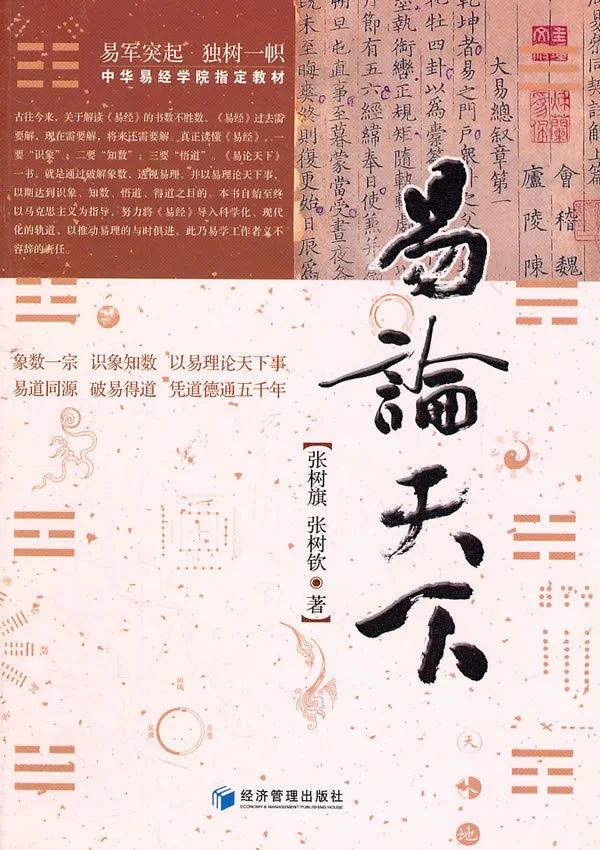 易军突起 独树一帜
中华易经学院指定教材
古往今来，关于解读《易经》的书数不胜数，《易经》过去需
要解，现在需要解，将来还需要解。真正读懂《易经》，一
要“识象”；二要“知数”；三要“悟道”。《易论天下》
一书，就是通过破解象数，透视易理，并以易理论天下事，
以期达到识象、知数、悟道、得道之目的。本书自始至终
以马克思主义为指导，努力将《易经》导入科学化、现代
化的轨道，以推动易理的与时俱进，此乃易学工作者义不
容辞的责任。
大易總叙章第一
乾坤者易之門戶衆卦之父
牝牡四卦以為橐籥
墨執銜轡正規矩隨軌轍
月節有五六經緯奉日使兼并
剛直事至暮蒙當受晝夜各
既未至晦爽終則復更始日辰為
會稽魏
廬陵陳
易論天下
象数一宗 识象知数 以易理论天下事
易道同源 破易得道 凭道德通五千年
【张树旗 张树钦 著】
天
人
地
经济管理出版社
ECONOMY & MANAGEMENT PUBLISHING HOUSE